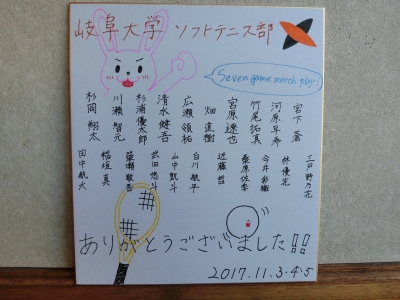 岐阜大学 ソフトテニス部
Seven game match play!
宮下 蒼
河原 早希
竹尾 拓真
宮原 遼也
畑 直樹
広瀬 領祐
清水 健吾
杉浦 優太郎
川瀬 智元
杉岡 翔太
三戸野 乃花
林 優花
今井 彩織
桑原 佐季
近藤 哲
白川 航平
山中 凱斗
武田 悠斗
簗瀬 敬吾
稲垣 真
田中 航大
ありがとうございました!!
2017.11.3.4.5